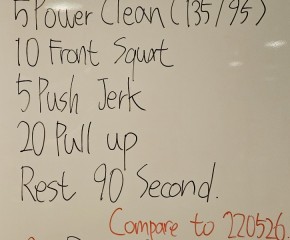 5 Power Clean (135/95)
10 Front Squat
5 Push Jerk
20 Pull up
Rest 90 Second.
Compare to 220526.